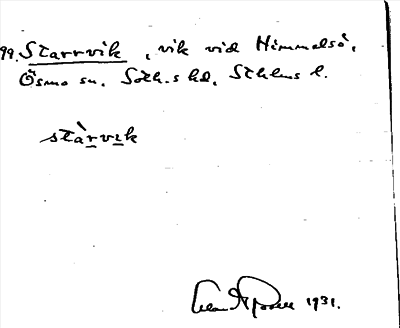 99. Starrvik, vik vid Himmelsö,
Ösmo sn. Soth.s hd, Sthlms l.
stàrvik
1931.